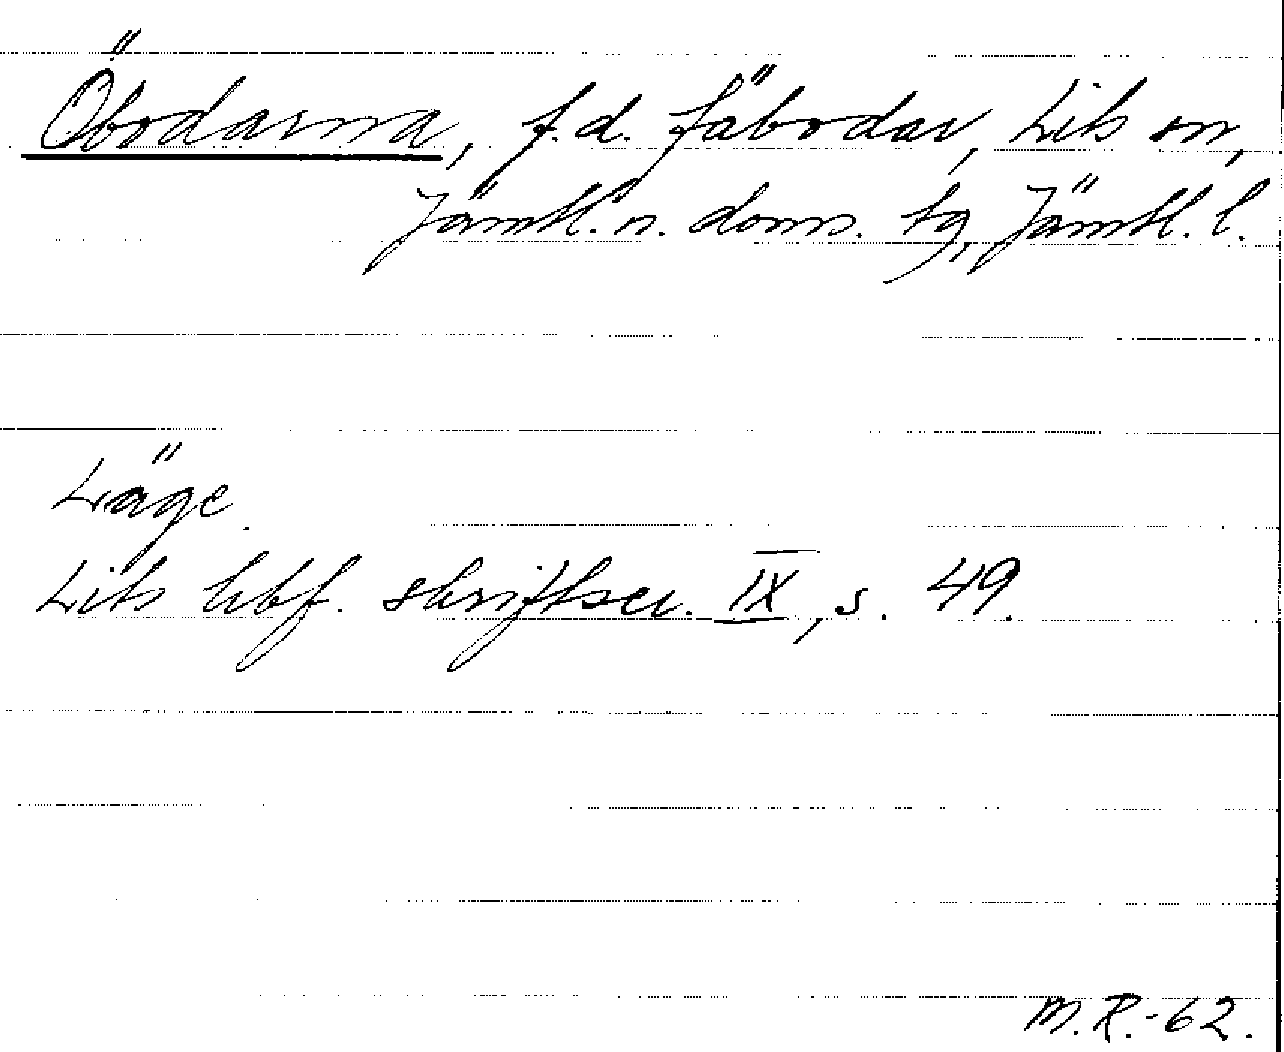 Öbodarna, f.d. fäbodar, Lits sn,
Jämtl. n. doms. tg, Jämtl. l.
Läge.
Lits hbf. skriftser. IX, s. 49.
M.R.-62.